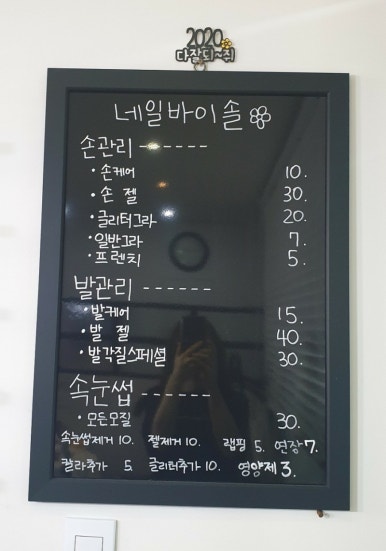 2020
다잘되~쥐
네일바이솔
손관리 ------
·손케어 10.
·손 젤 30.
·글리터그라 20.
·일반그라 7.
·프렌치 5.
발관리 ------
·발케어 15.
·발 젤 40.
·발각질스페셜 30.
속눈썹 ------
·모든모질 30.
속눈썹제거 10. 젤제거 10. 랩핑 5. 연장 7.
칼라추가 5. 글리터추가 10. 영양제 3.